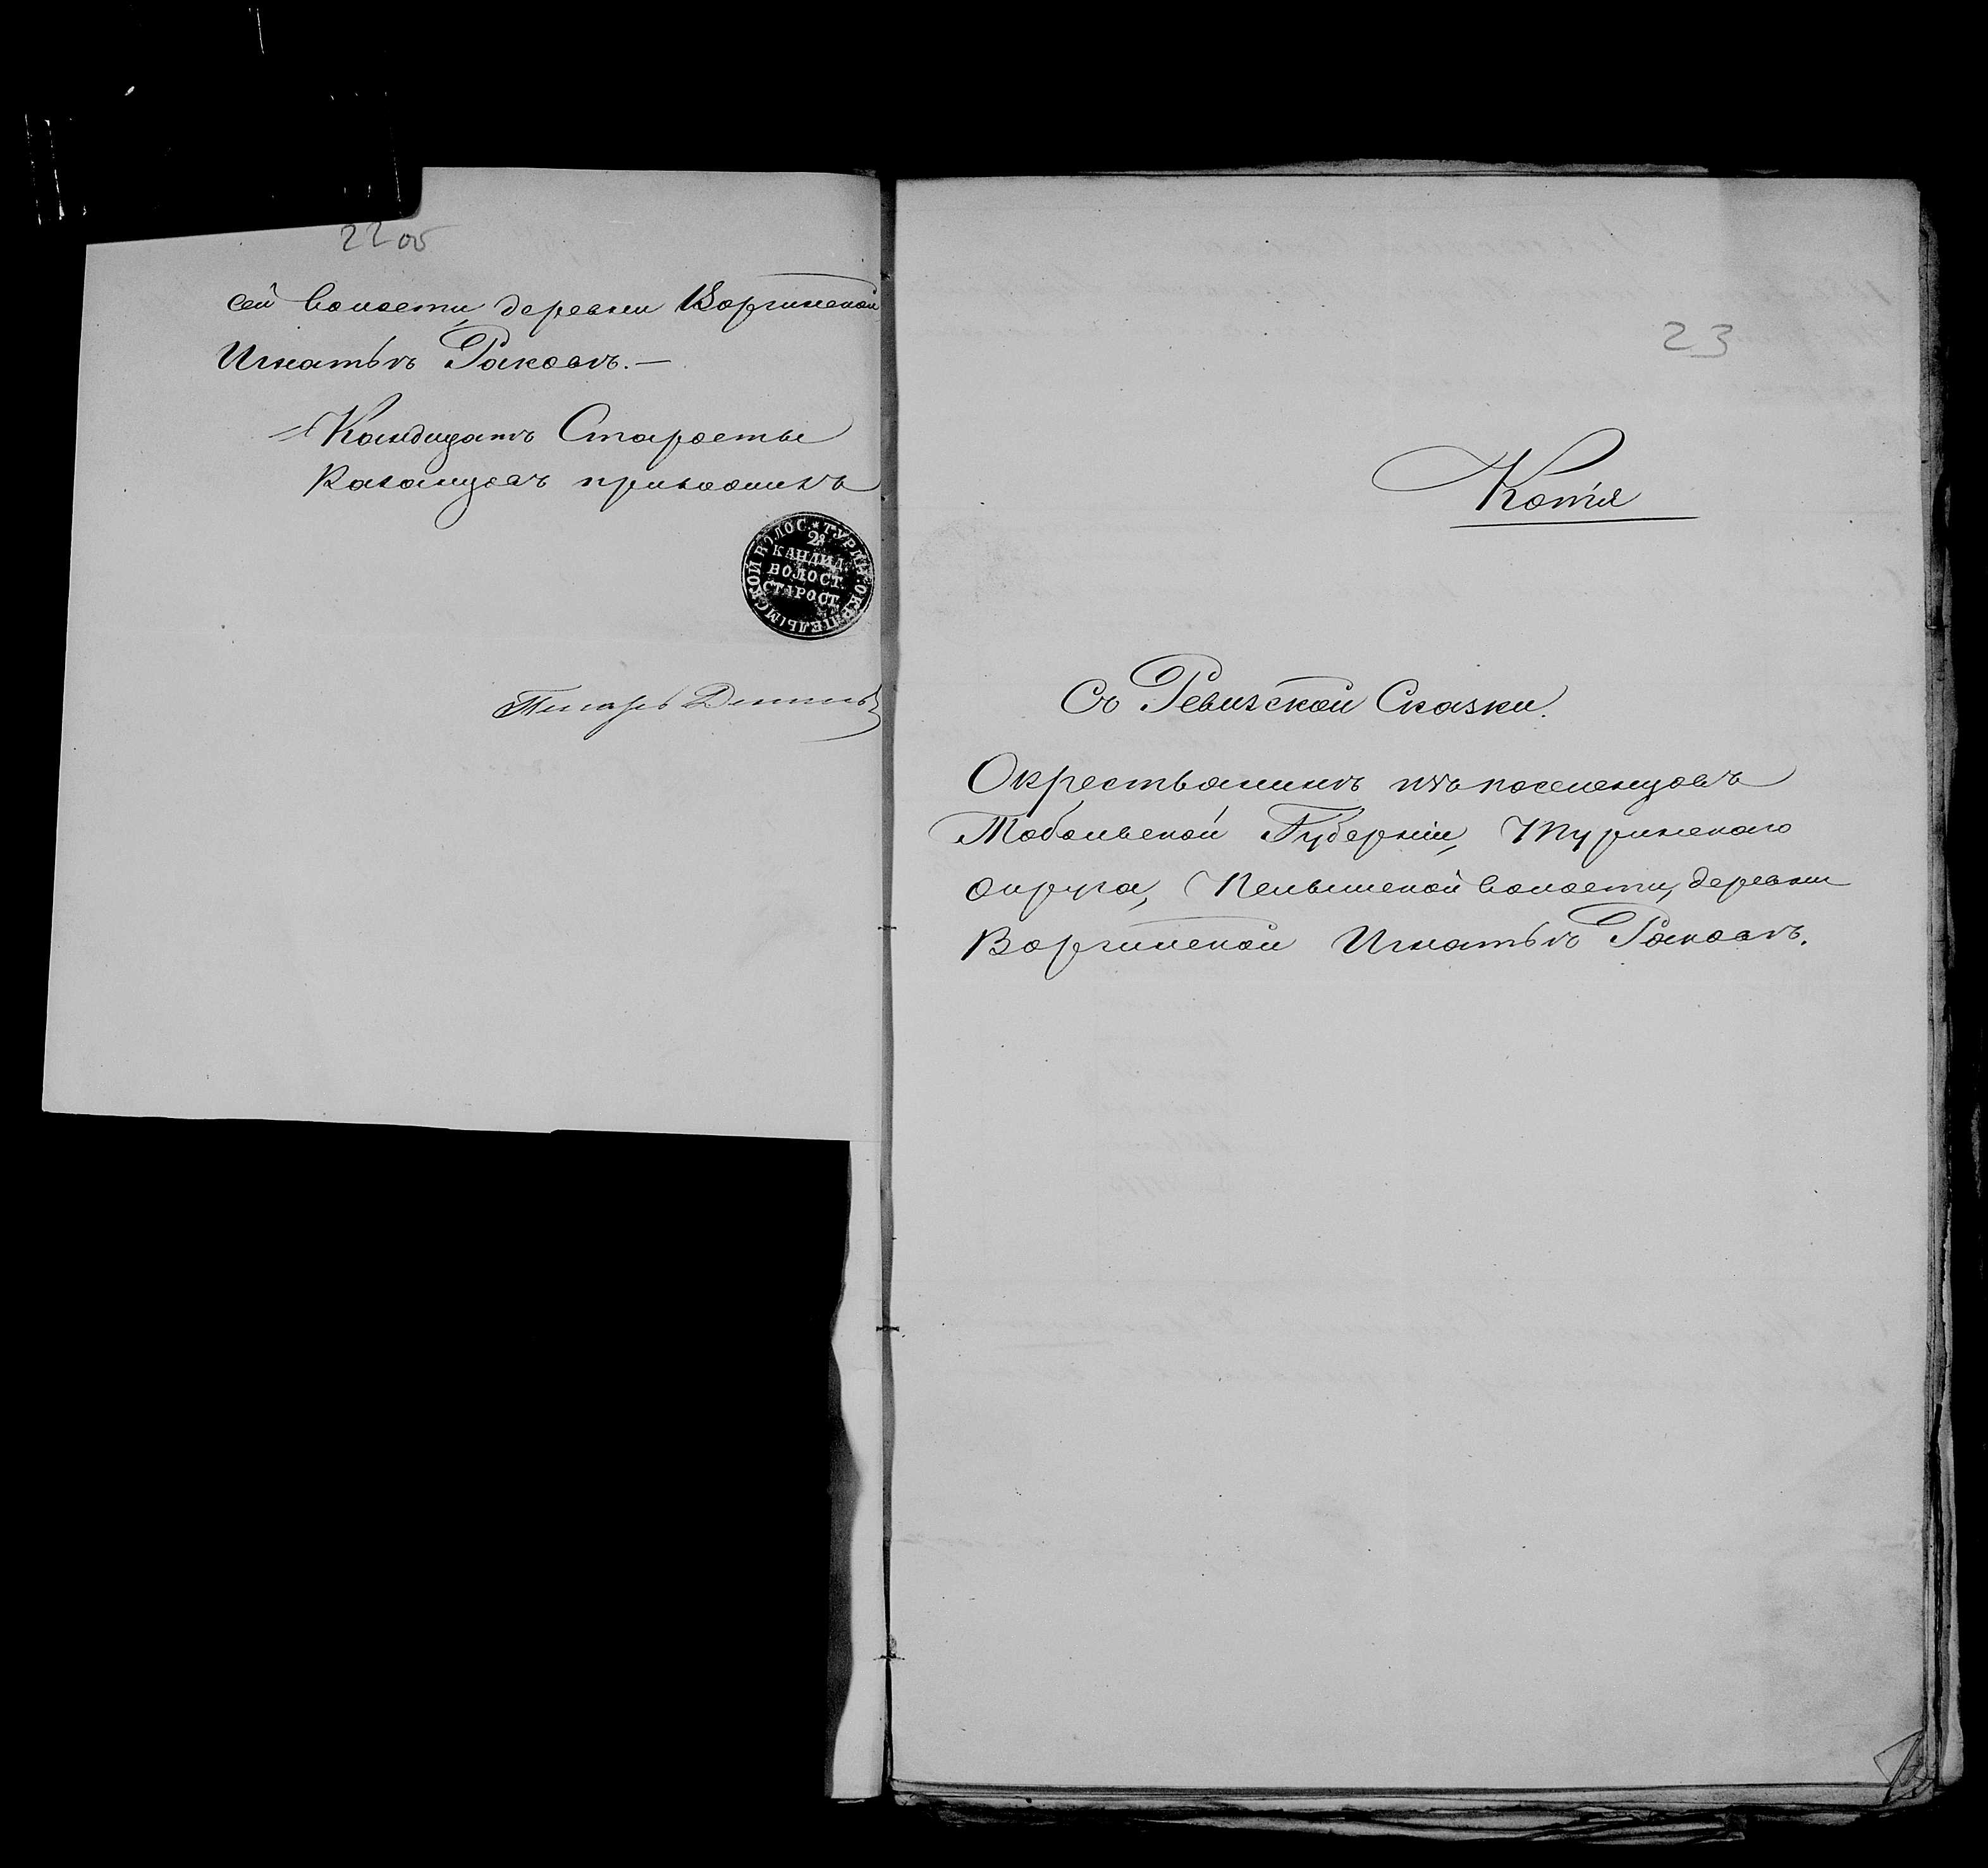 22 об
сей волости, деревни Воргинской
Игнатьѣ Раковѣ.—
Кандидатъ Старосты
Казанцовъ приложилъ
ПЕЛЫМСКОЙ ВОЛОС. ★ ТУРИН. ОКР.
2й
КАНДИД.
ВОЛОСТ.
СТАРОСТ.
Писарь
23
Копія
Съ Ревизской Сказки.
О крестьянинѣ изъ поселенцовъ
Тобольской Губерніи, Туринскаго
округа, Пелымской волости, деревни
Воргинской Игнатьѣ Раковѣ.